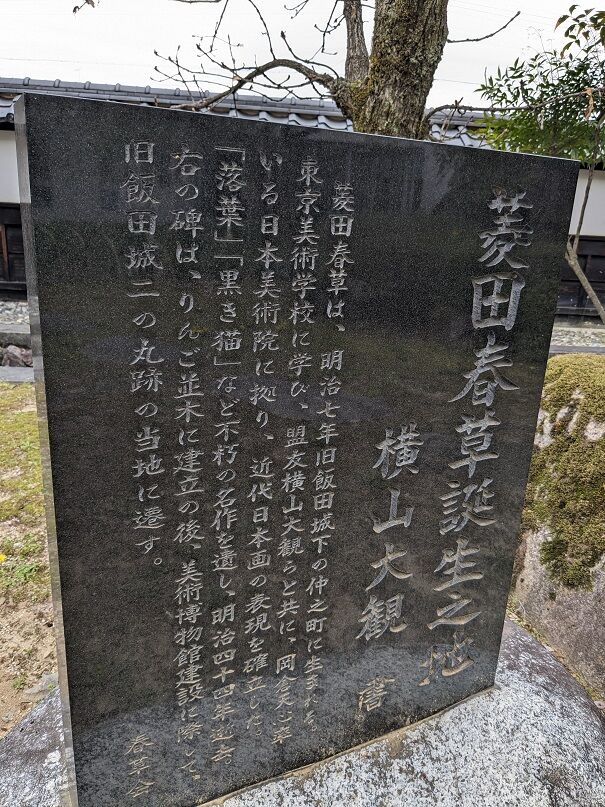 菱田春草誕生之地
横山大観 書
菱田春草は、明治七年旧飯田城下の仲之町に生まれる。
東京美術学校に学び、盟友横山大観らと共に、岡倉天心率
いる日本美術院に拠り、近代日本画の表現を確立した。
「落葉」「黒き猫」など不朽の名作を遺し、明治四十四年逝去。
右の碑は、りんご並木に建立の後、美術博物館建設に際して、
旧飯田城二の丸跡の当地に遷す。
春草会